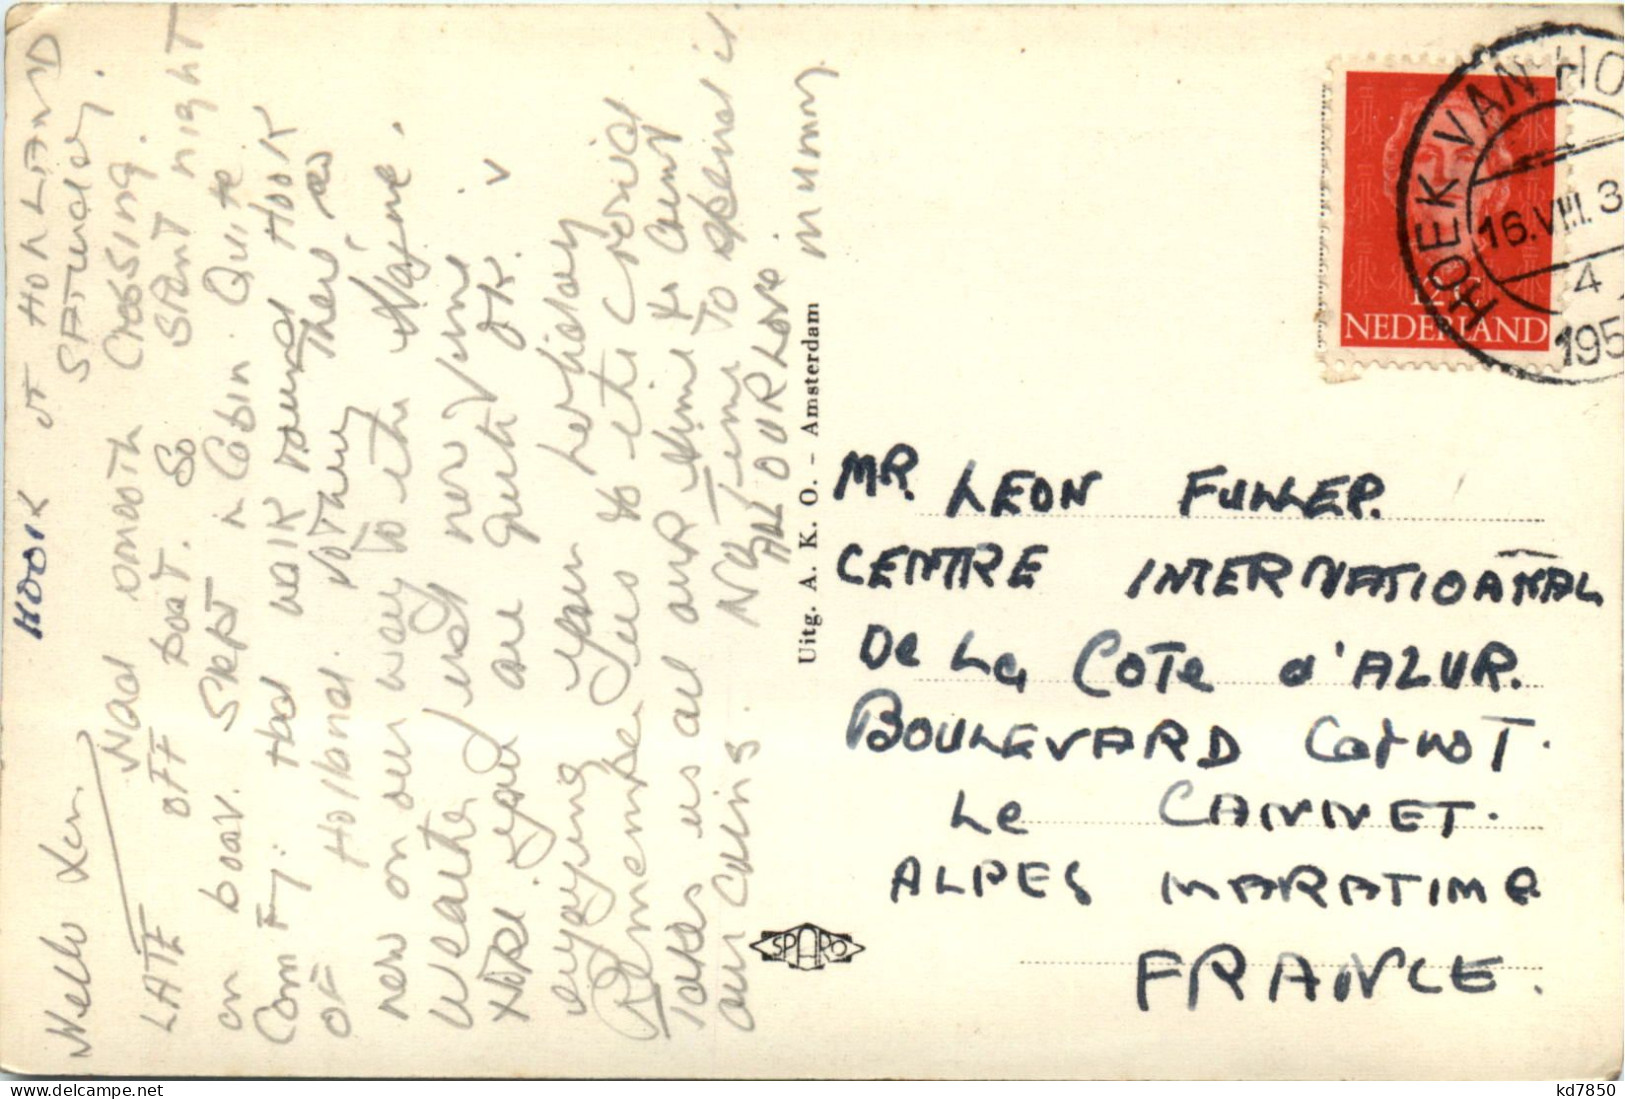 HOOK of HOLLAND
SATURDAY.
Hello Len.
Had smooth Crossing.
LATE OFF boat. So SPENT night
on boat. SLEPT in Cabin. Quite
ComFy. Had walk round HOOK
OF Holland. not very There
now on our way to the
Weather just now fine
HOPE you are quite OK.
enjoying your holiday
Remember us to the
Takes us all our time to count
our coins. No Time To spend it
ALL OUR LOVE.
Mummy
Uitg. A. K. O. - Amsterdam
SPARO
NEDERLAND
12 c
HOEK VAN HO
16.VIII. 3
4
195
MR. LEON FULLER.
CENTRE INTERNATIOANAL
De La COTe d'AZUR.
BOULEVARD Carnot.
Le CANNET.
ALPES MARATIME
FRANCE.
kd7850
delcampe.net